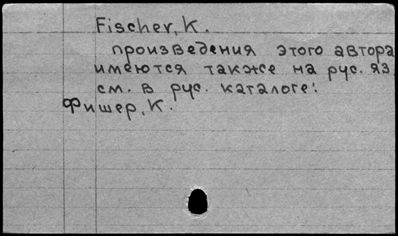 Fischer, K.
произведения этого автора
имеются также на рус. яз.
см. в рус. каталоге:
Фишер, К.